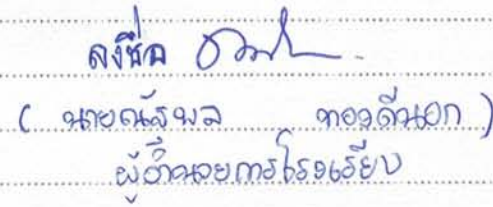 ลงชื่อ
( นายณัฐพล ทองดีนอก )
ผู้อำนวยการโรงเรียน